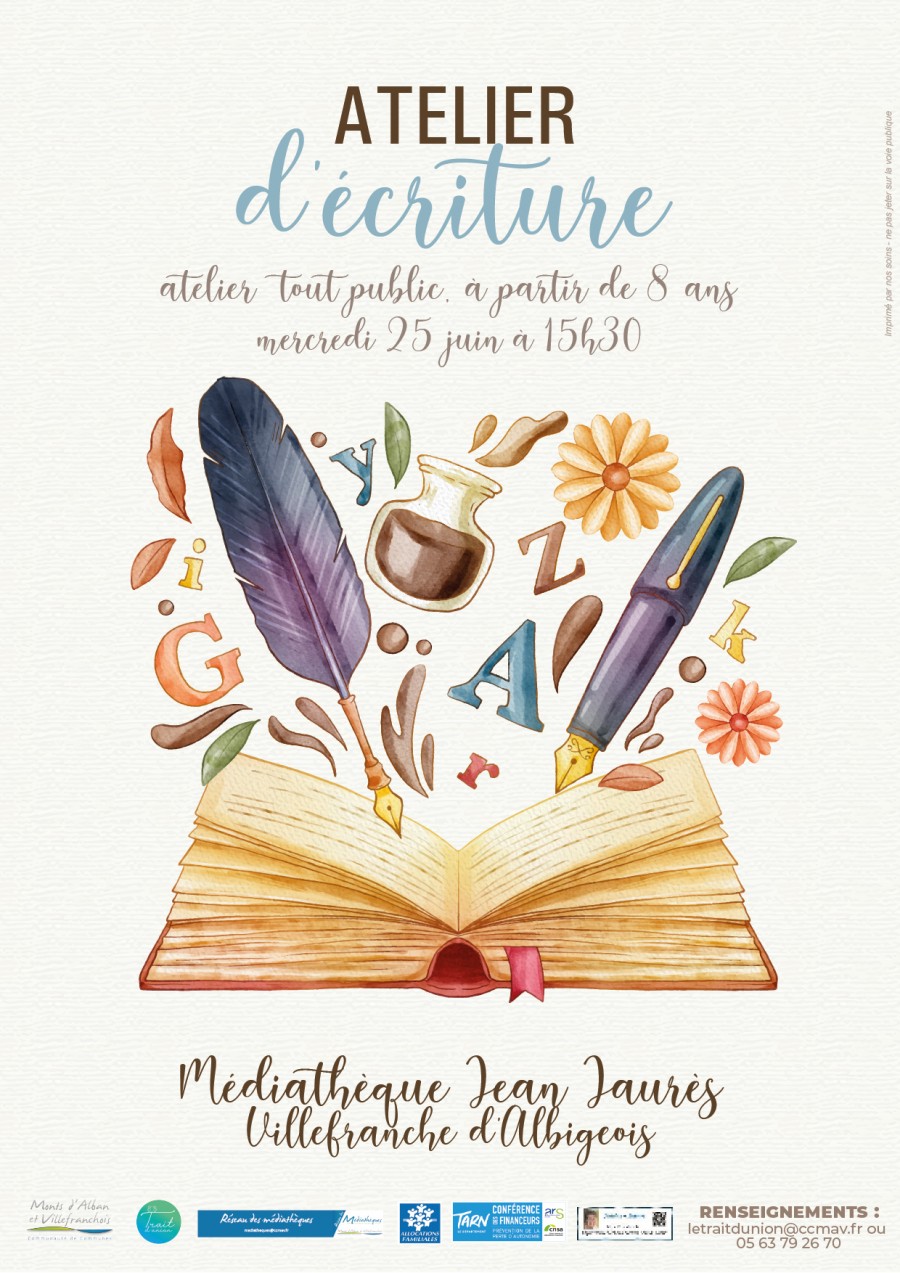 ATELIER
d'écriture
atelier tout public, à partir de 8 ans
mercredi 25 juin à 15h30
Imprimé par nos soins - ne pas jeter sur la voie publique
y
i
Z
G
A
k
r
Médiathèque Jean Jaurès
Villefranche d'Albigeois
Monts d'Alban
et Villefranchois
Communauté de Communes
Trait
d'union
Réseau des médiathèques
Médiathèques
ALLOCATIONS
FAMILIALES
TARN
LE DÉPARTEMENT
CONFÉRENCE
DES FINANCEURS
PRÉVENTION DE LA
PERTE D'AUTONOMIE
ars
cnsa
RENSEIGNEMENTS :
letraitdunion@ccmav.fr ou
05 63 79 26 70